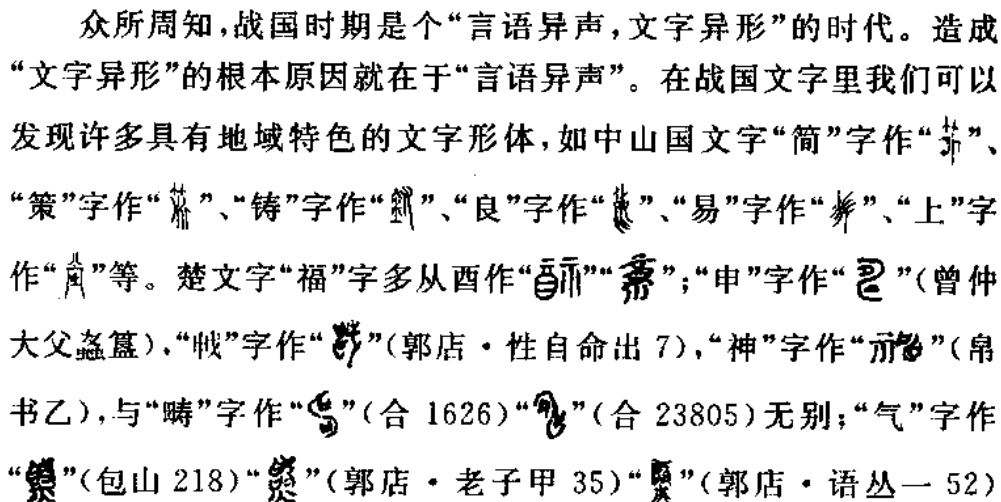 众所周知,战国时期是个“言语异声,文字异形”的时代。造成
“文字异形”的根本原因就在于“言语异声”。在战国文字里我们可以
发现许多具有地域特色的文字形体,如中山国文字“简”字作“”、
“策”字作“”、“铸”字作“”、“良”字作“”、“易”字作“”、“上”字
作“”等。楚文字“福”字多从酉作“”“”;“申”字作“”(曾仲
大父螽簋),“戕”字作“”(郭店·性自命出 7),“神”字作“”(帛
书乙),与“畴”字作“”(合 1626)“”(合 23805)无别;“气”字作
“”(包山 218)“”(郭店·老子甲 35)“”(郭店·语丛一 52)